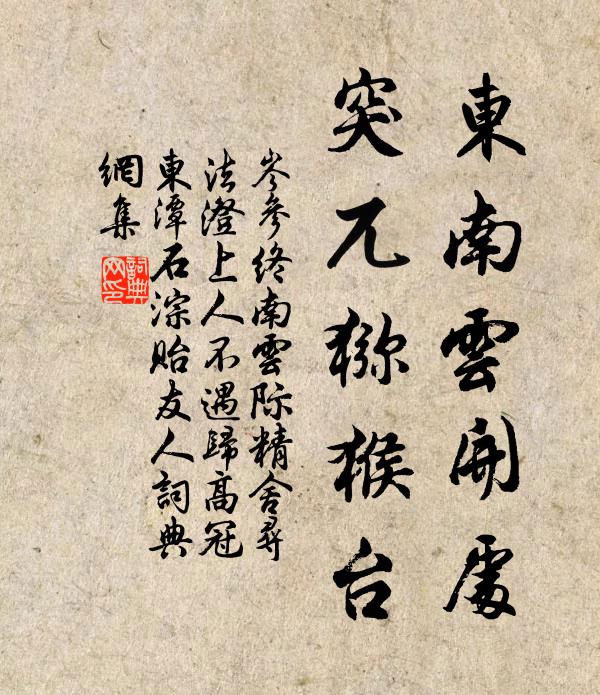 東南雲開處
突兀獼猴台
岑參終南雲际精舍尋
法澄上人不遇歸高冠
東潭石淙貽友人詞典
網集
詞典
网印